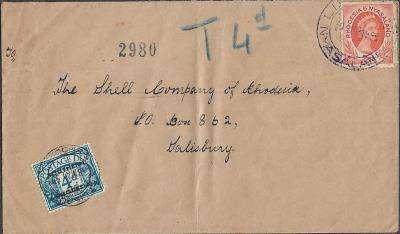 T 4d
2980
RHODESIA & NYASALAND
To
The Shell Company of Rhodesia,
P.O. Box 862,
Salisbury
POSTAGE DUE
4d